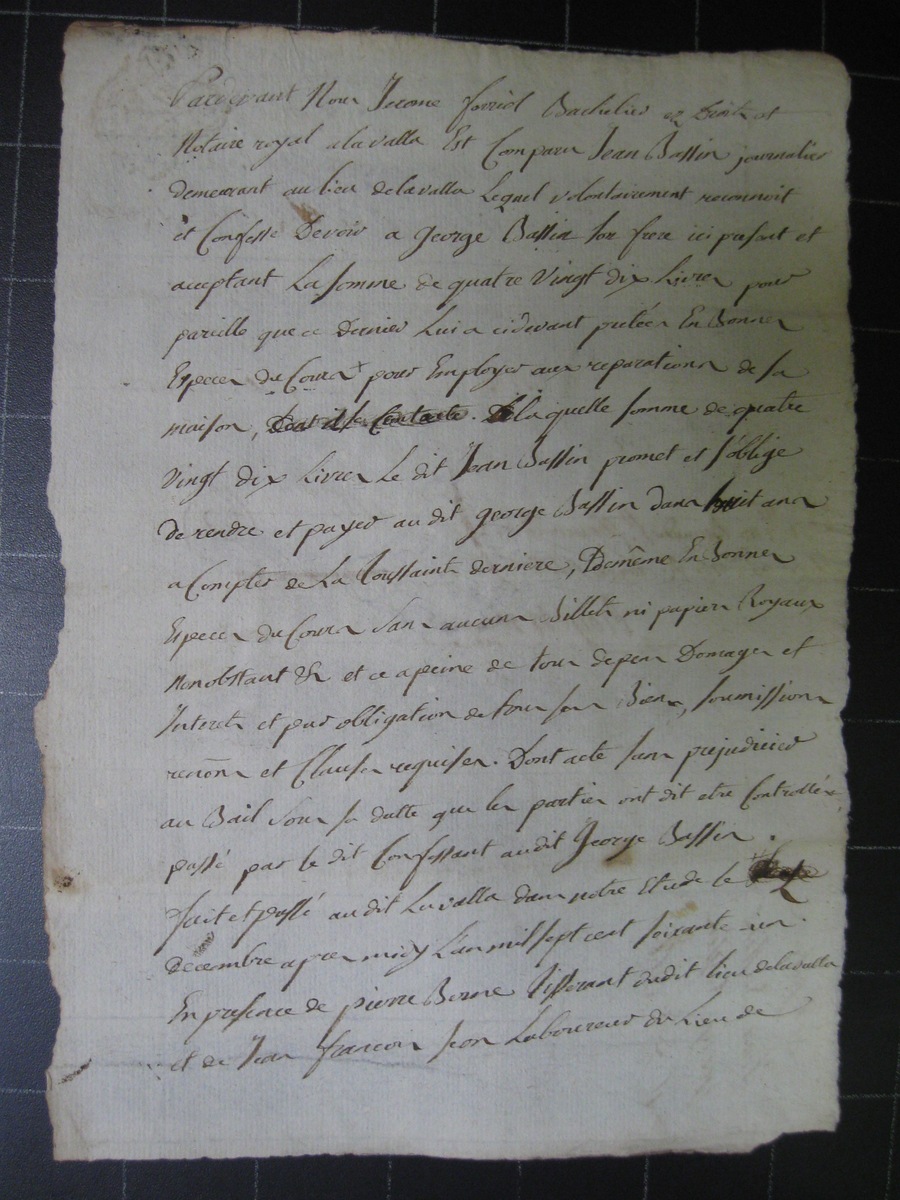 Pardevant Nous Jerome forriol Bachelier ez Droits et
Notaire royal a lavalla Est Comparu Jean Bassin journalier
demeurant au lieu delavalla Lequel volontairement reconnoit
et Confesse Devoir a George Bassin son frere ici present et
acceptant La somme de quatre Vingt dix Livres pour
pareille que ce Dernier Lui a cidevant pretées En Bonnes
Especes du Cours + pour Employer aux reparations de sa
maison, De laquelle somme de quatre
Vingt dix Livres Le dit Jean Bassin promet et s'oblige
de rendre et payer au dit George Bassin dans huit ans
a Compter de La Toussaints derniere, Demême En Bonnes
Especes du Cours sans aucuns Billets ni papiers Royaux
Nonobstant &c et ce a peine de tous depens Domages et
Interets et par obligation de tous ses Biens, soumissions
renõns et Clauses requises. Dont acte sans prejudicier
au Bail sous sa datte que les parties ont dit etre Controllée,
passé par le dit Confessant audit George Bassin.
fait et passé audit Lavalla dans notre Etude le
Decembre apres midy L'an mil sept cent soixante un.
En presence de pierre Tisserant dudit lieu delavalla
et de Jean françois Laboureur du Lieu de